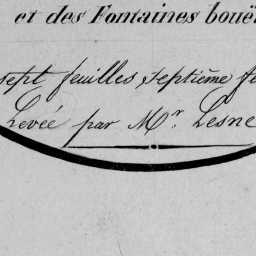 et des Fontaines bouë
sept feuilles, septième f
Levée par Mr. Lesne